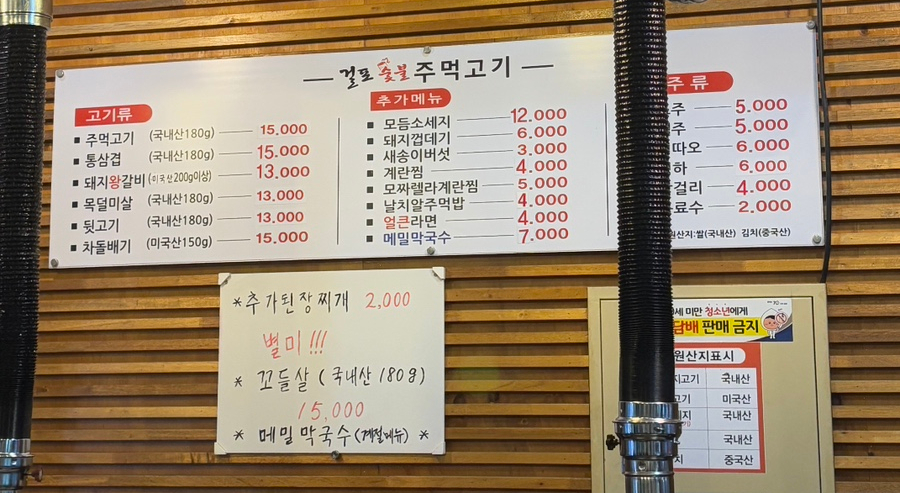 걸포 숯불 주먹고기
고기류
주먹고기 (국내산180g) 15.000
통삼겹 (국내산180g) 15.000
돼지왕갈비 (미국산200g이상) 13.000
목덜미살 (국내산180g) 13.000
뒷고기 (국내산180g) 13.000
차돌배기 (미국산150g) 15.000
추가메뉴
모듬소세지 12.000
돼지껍데기 6.000
새송이버섯 3.000
계란찜 4.000
모짜렐라계란찜 5.000
날치알주먹밥 4.000
얼큰라면 4.000
메밀막국수 7.000
주류
주 5.000
주 5.000
따오 6.000
하 6.000
걸리 4.000
료수 2.000
원산지:쌀(국내산) 김치(중국산)
*추가된장찌개 2,000
별미!!!
* 꼬들살 (국내산 180g)
15,000
* 메밀막국수 (계절메뉴) *
세 미만 청소년에게
담배 판매 금지
원산지표시
지고기 국내산
고기 미국산
지 국내산
국내산
치 중국산